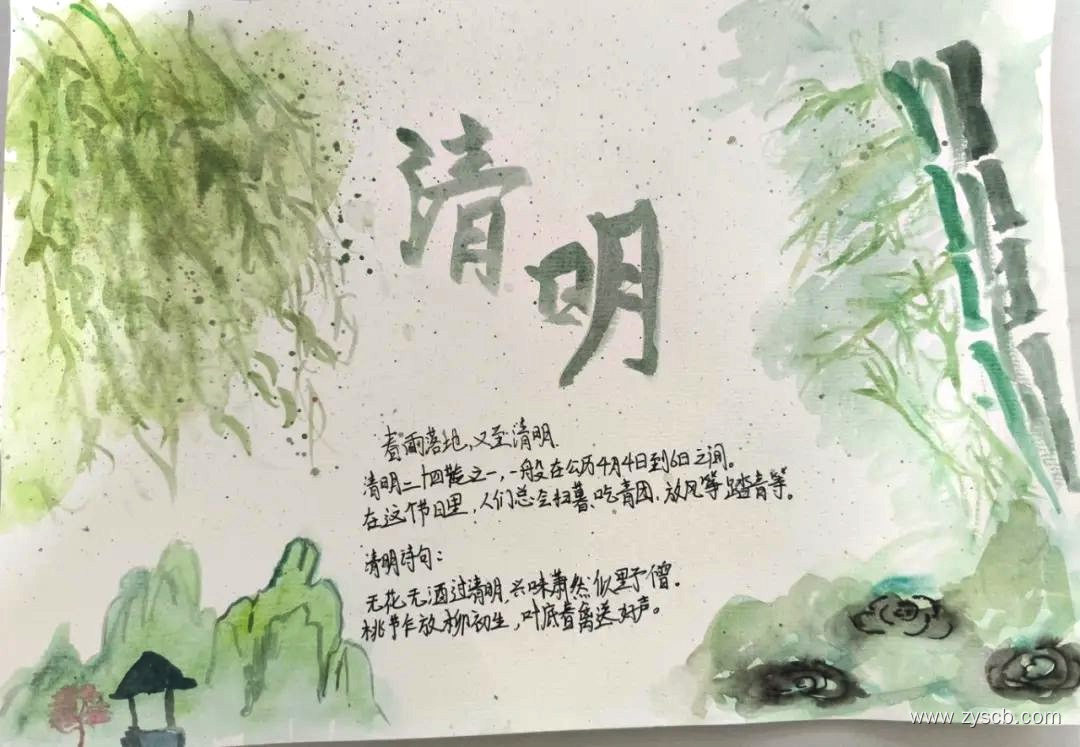 清明
春雨落地,又至清明.
清明二十四节之一,一般在公历4月4日到6日之间。
在这个节日里,人们总会扫墓、吃青团、放风筝踏青等。
清明诗句:
无花无酒过清明,兴味萧然似野僧。
桃节乍放柳初生,叶底春禽送好声。
www.zyscb.com